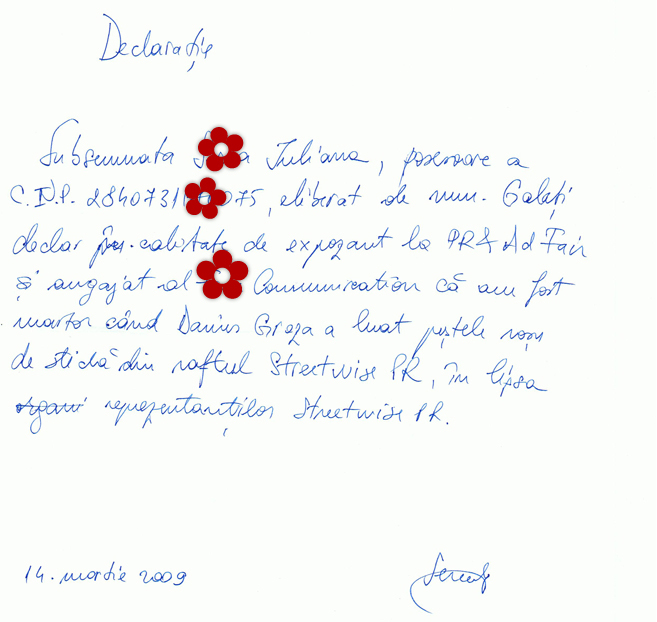 Declarație
Subsemnata Iuliana, posesoare a
C.N.P. 2840731 075, eliberat de mun. Galați
declar în calitate de expozant la PR & Ad Fair
și angajat al Communication că am fost
martor când Darius Groza a luat peștele roșu
de sticlă din raftul Streetwise PR, în lipsa
reprezentanților Streetwise PR.
14. martie 2009